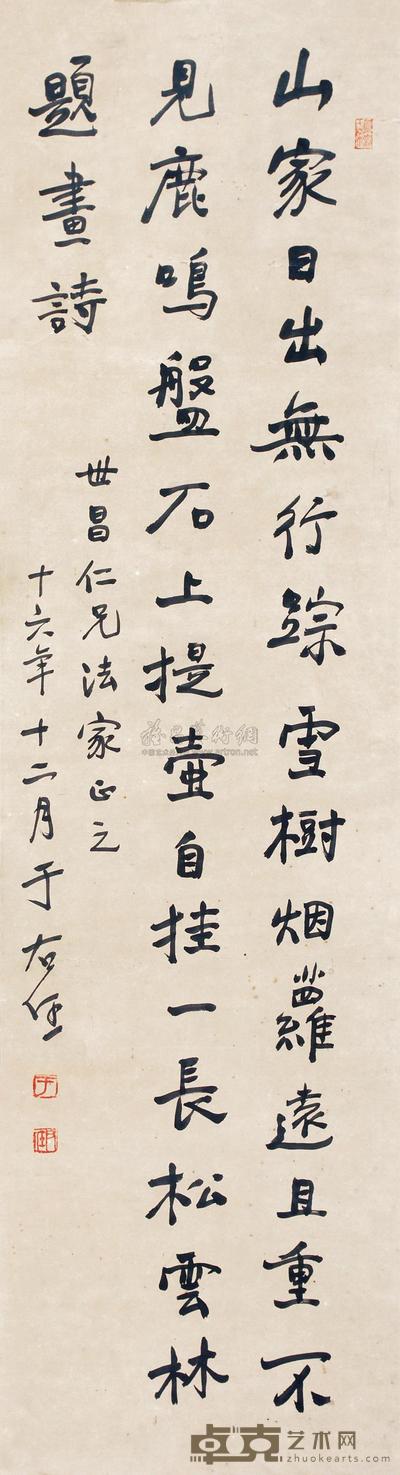 山家日出無行踪雪樹烟蘿遠且重不
見鹿鳴盤石上提壺自挂一長松雲林
題畫詩
世昌仁兄法家正之
十六年十二月于右任
雅昌藝術網
中国艺术品门户网 www.artron.net
卓克艺术网
www.zhuokearts.com